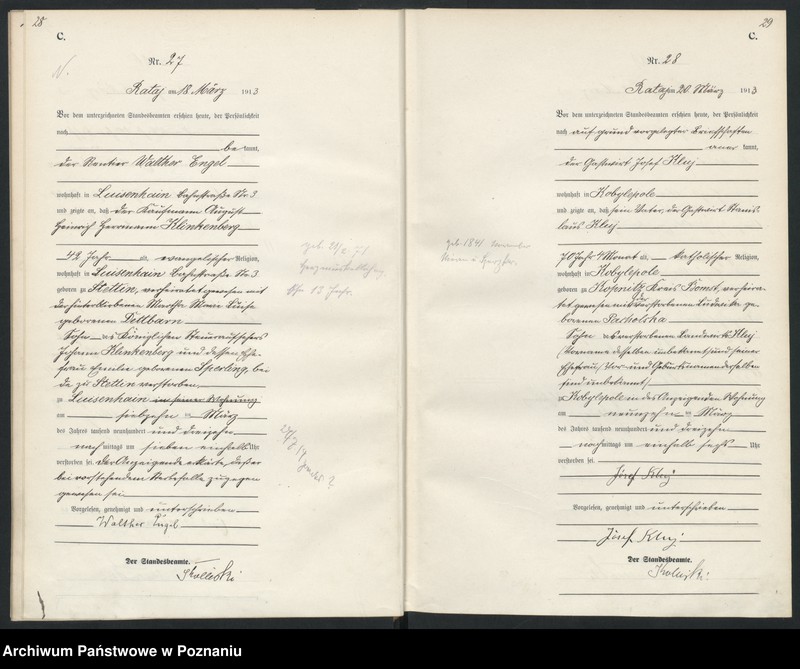 28
C.
Nr. 27
Rataj am 18. März 1913
Vor dem unterzeichneten Standesbeamten erschien heute, der Persönlichkeit
nach
be kannt,
der Rentier Walther Engel
wohnhaft in Luisenhain Bahnstraße Nr. 3
und zeigte an, daß der Kaufmann August
Heinrich Herrmann Klenkenberg
42 Jahr evangelischer Religion,
wohnhaft in Luisenhain Bahnstraße Nr. 3
geboren zu Stettin, verheiratet gewesen mit
der hinterbliebenen Martha Marie Luise
geborenen Dettbarn
Sohn des Königlichen Steueraufsehers
Johann Klenkenberg und dessen Ehe-
frau Emilie geborenen Sperling, bei-
de zu Stettin verstorben,
zu Luisenhain in seiner Wohnung
am siebzehn ten März
des Jahres tausend neunhundert und dreizehn
nach mittags um sieben einhalb Uhr
verstorben sei. Der Anzeigende erklärte, daß er
bei vorstehendem Sterbefalle zugegen
gewesen sei
Vorgelesen, genehmigt und unterschrieben
Walther Engel
Der Standesbeamte.
29
C.
Nr. 28
Rataj am 20. März 1913
Vor dem unterzeichneten Standesbeamten erschien heute, der Persönlichkeit
nach auf Grund vorgelegter Briefschaften
aner kannt,
der Gastwirt Josef Kluj
wohnhaft in Kobylepole
und zeigte an, daß sein Vater, der Gastwirt Stanis-
laus Kluj
70 Jahr 4 Monat katholischer Religion,
wohnhaft in Kobylepole
geboren zu Kopnitz Kreis Bomst, verheira-
tet gewesen mit der verstorbenen Ludwika ge-
borenen
Sohn des verstorbenen Landwirts Kluj
(Vorname desselben unbekannt) und seiner
Ehefrau (Vor- und Geburtsname derselben
sind unbekannt)
zu Kobylepole in des Anzeigenden Wohnung
am neunzehn ten März
des Jahres tausend neunhundert und dreizehn
nach mittags um einhalb sechs Uhr
verstorben sei.
Józef Kluj
Vorgelesen, genehmigt und unterschrieben
Józef Kluj
Der Standesbeamte.
Archiwum Państwowe w Poznaniu